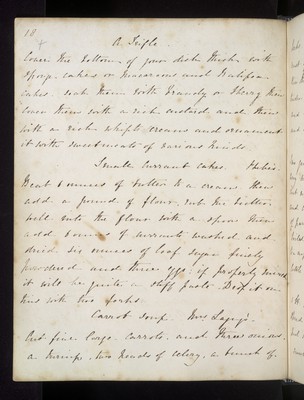 18
A Trifle.
Cover the bottom of your dish thick with
sponge cakes or macaroons and Ratifia
cakes. wet them with brandy or Sherry then
cover them with a rich custard and then
with a rich whipt cream and ornament
it with sweetmeats of various kinds.
Small currant cakes.
Beat 6 ounces of butter to a cream then
add a pound of flour, rub the butter
well into the flour with a spoon then
add 6 ounces of currants washed and
dried. six ounces of loaf sugar finely
powdered and three eggs. if properly mixed
it will be quite a stiff paste. Drop it on
tins with two forks.
Carrot Soup. Mrs
Cut fine large carrots, and three onions,
a turnip, two heads of celery, a bunch of